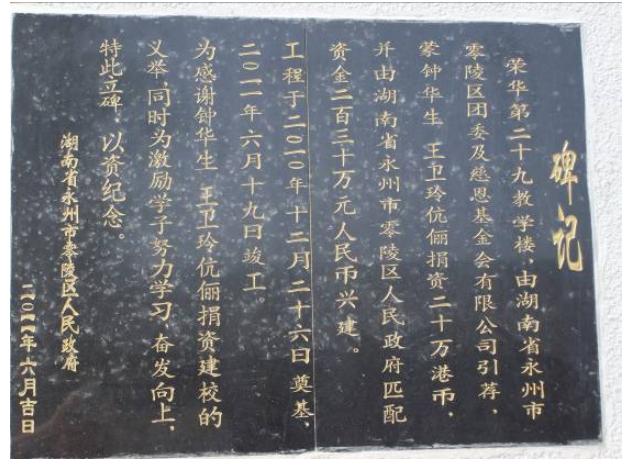 碑记
荣华第二十九教学楼、由湖南省永州市
零陵区团委及慈恩基金会有限公司引荐、
蒙钟华生 王卫玲伉俪捐资二十万港币、
并由湖南省永州市零陵区人民政府匹配
资金二百三十万元人民币兴建。
工程于二〇一〇年十二月二十六日奠基、
二〇一一年六月十九日竣工。
为感谢钟华生 王卫玲伉俪捐资建校的
义举、同时为激励学子努力学习、奋发向上、
特此立碑、以资纪念。
湖南省永州市零陵区人民政府
二〇一一年六月吉日